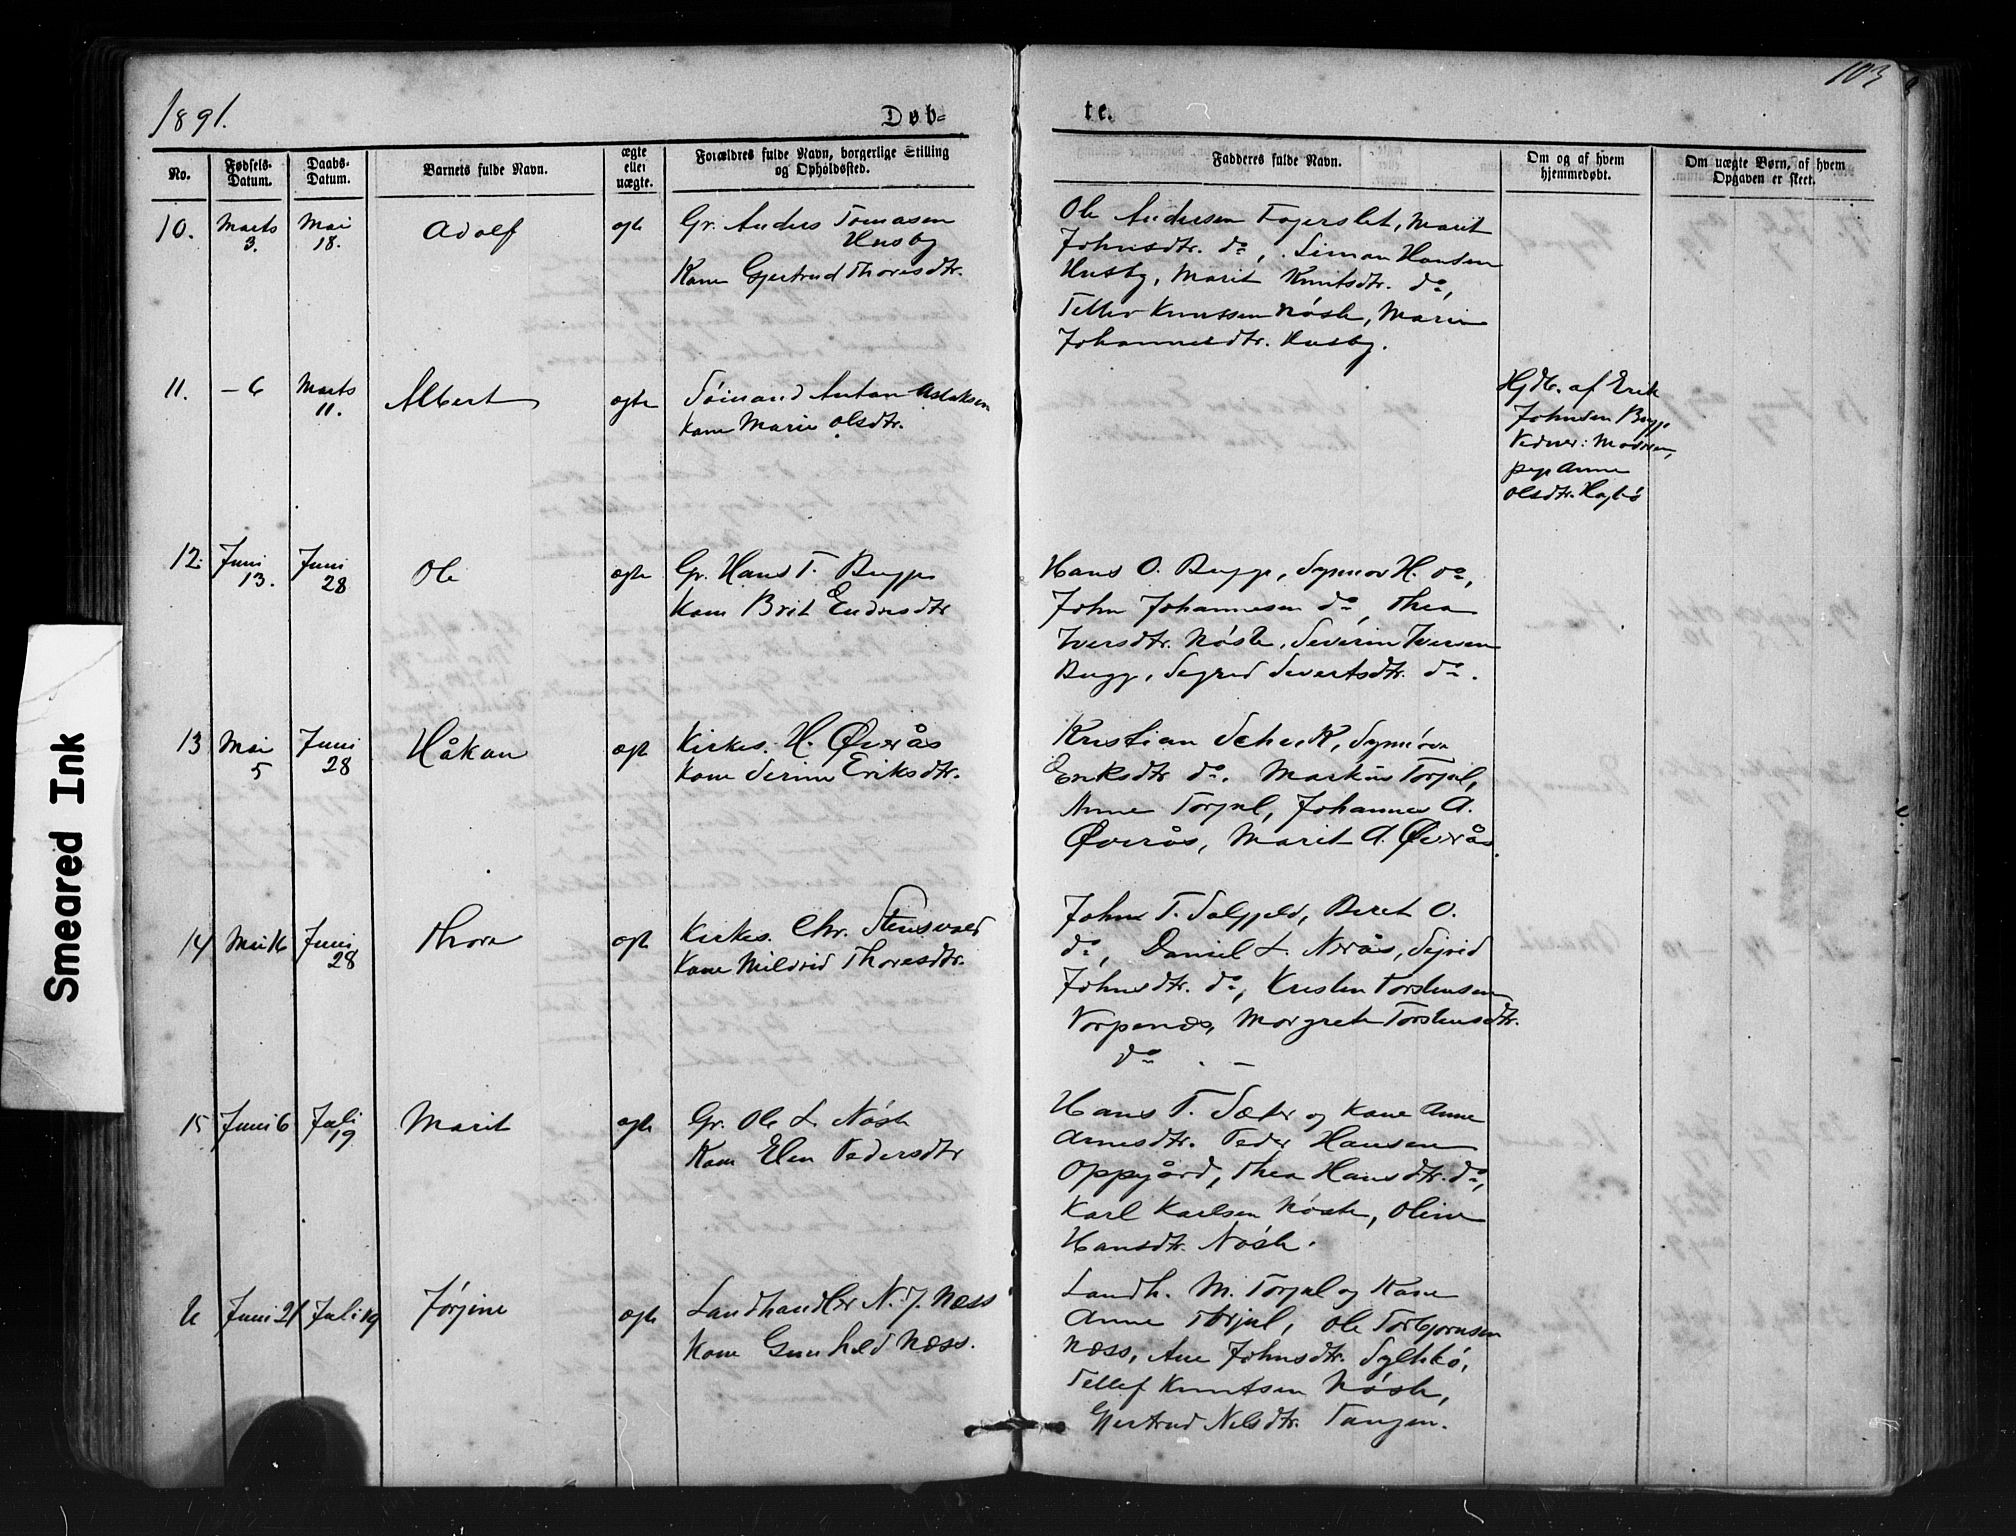 1891.
Døb-
te.
103
No.
Fødsels-
Datum.
Daabs-
Datum.
Barnets fulde Navn.
ægte
eller
uægte.
Forældres fulde Navn, borgerlige Stilling
og Opholdssted.
Fadderes fulde Navn.
Om og af hvem
hjemmedøbt.
Om uægte Børn, af hvem
Opgaven er skeet.
10.
Marts
3.
Mai
18.
Adolf
ægte
Gr. Anders Tomasen
Husby
Kone Gjertrud Thoresdtr.
Ole Andersen Fagerslet, Marit
Johnsdtr. do, Simon Hansen
Husby, Marit Knutsdtr. do,
Tellev Knutssen Nøste, Marie
Johannesdtr. Husby.
11.
- 6
Marts
11.
Albert
ægte
Sømand Anton Aslaksen
Kone Marie Olsdtr.
Hjdb. af Erik
Johnsen Bugge
Vidner: Modren,
pige Anne
Olsdtr. Hagbø
12.
Juni
13.
Juni
28
Ole
ægte
Gr. Hans T. Bugge
Kone Brit Endresdtr
Hans O. Bugge, Synnøv H. do,
John Johannesen do, Thea
Iversdtr. Nøste, Severin Iversen
Bugge, Sigrid Sivertsdtr. do.
13
Mai
5
Juni
28
Håkon
ægte
Kirkes. H. Øverås
Kone Serine Eriksdtr.
Kristian Schuk, Synnøve
Eriksdtr do. Markus Torjul,
Anne Torjul, Johannes A.
Øverås, Marit A. Øverås.
14
Mai 16
Juni
28
Thora
ægte
Kirkes. Chr. Stensvold
Kone Mildrid Thoresdtr.
John T. Salgjeld, Beret O.
do, Daniel L. Nerås, Sigrid
Johnsdtr. do, Kristen Torstensen
Vorpenæs, Margrete Torstensdtr.
do . -
15
Juni 6
Juli
19
Marit
ægte
Gr. Ole L Nøste
Kone Elen Pedersdtr
Hans T. Sæter og Kone Anne
Arnesdtr. Peder Hansen
Oppgård, Thea Hansdtr. do,
Karl Karlsen Nøste, Oline
Hansdtr. Nøste.
16
Juni 21
Juli 19
Jørgine
ægte
Landhandler N. J. Næss
Kone Gunhild Næss.
Landh. M. Torjul og Kone
Anne Torjul, Ole Torbjørnsen
Næss, Ane Johnsdtr. Syltebø,
Tellef Knutsen Nøste,
Gjertrud Nilsdtr. Tangen.
Smeared Ink